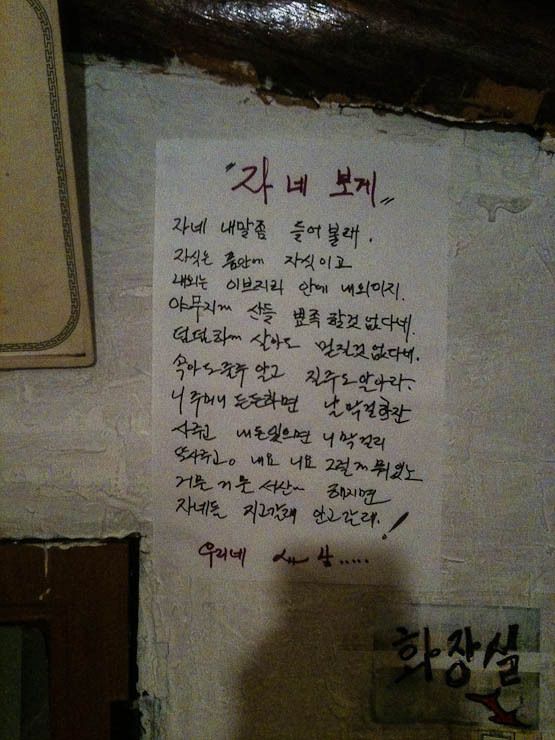 "자네 보게"
자네 내말좀 들어볼래.
자식은 품안에 자식이고
내외는 이브자리 안에 내외이지.
야무지게 산들 뾰족할것 없다네.
덤덤하게 살아도 밑질것없다네.
속아도 주고 알고 질주도 알아라.
니 주머니 든든하면 날 막걸리한잔
사주고 내돈있으면 니 막걸리
사주고. 내요 니요 그럴게 뭐있노
거물거물 서산에 해지면
자네들 지고갈래 안고갈래.!
우리네 세상.....
화장실